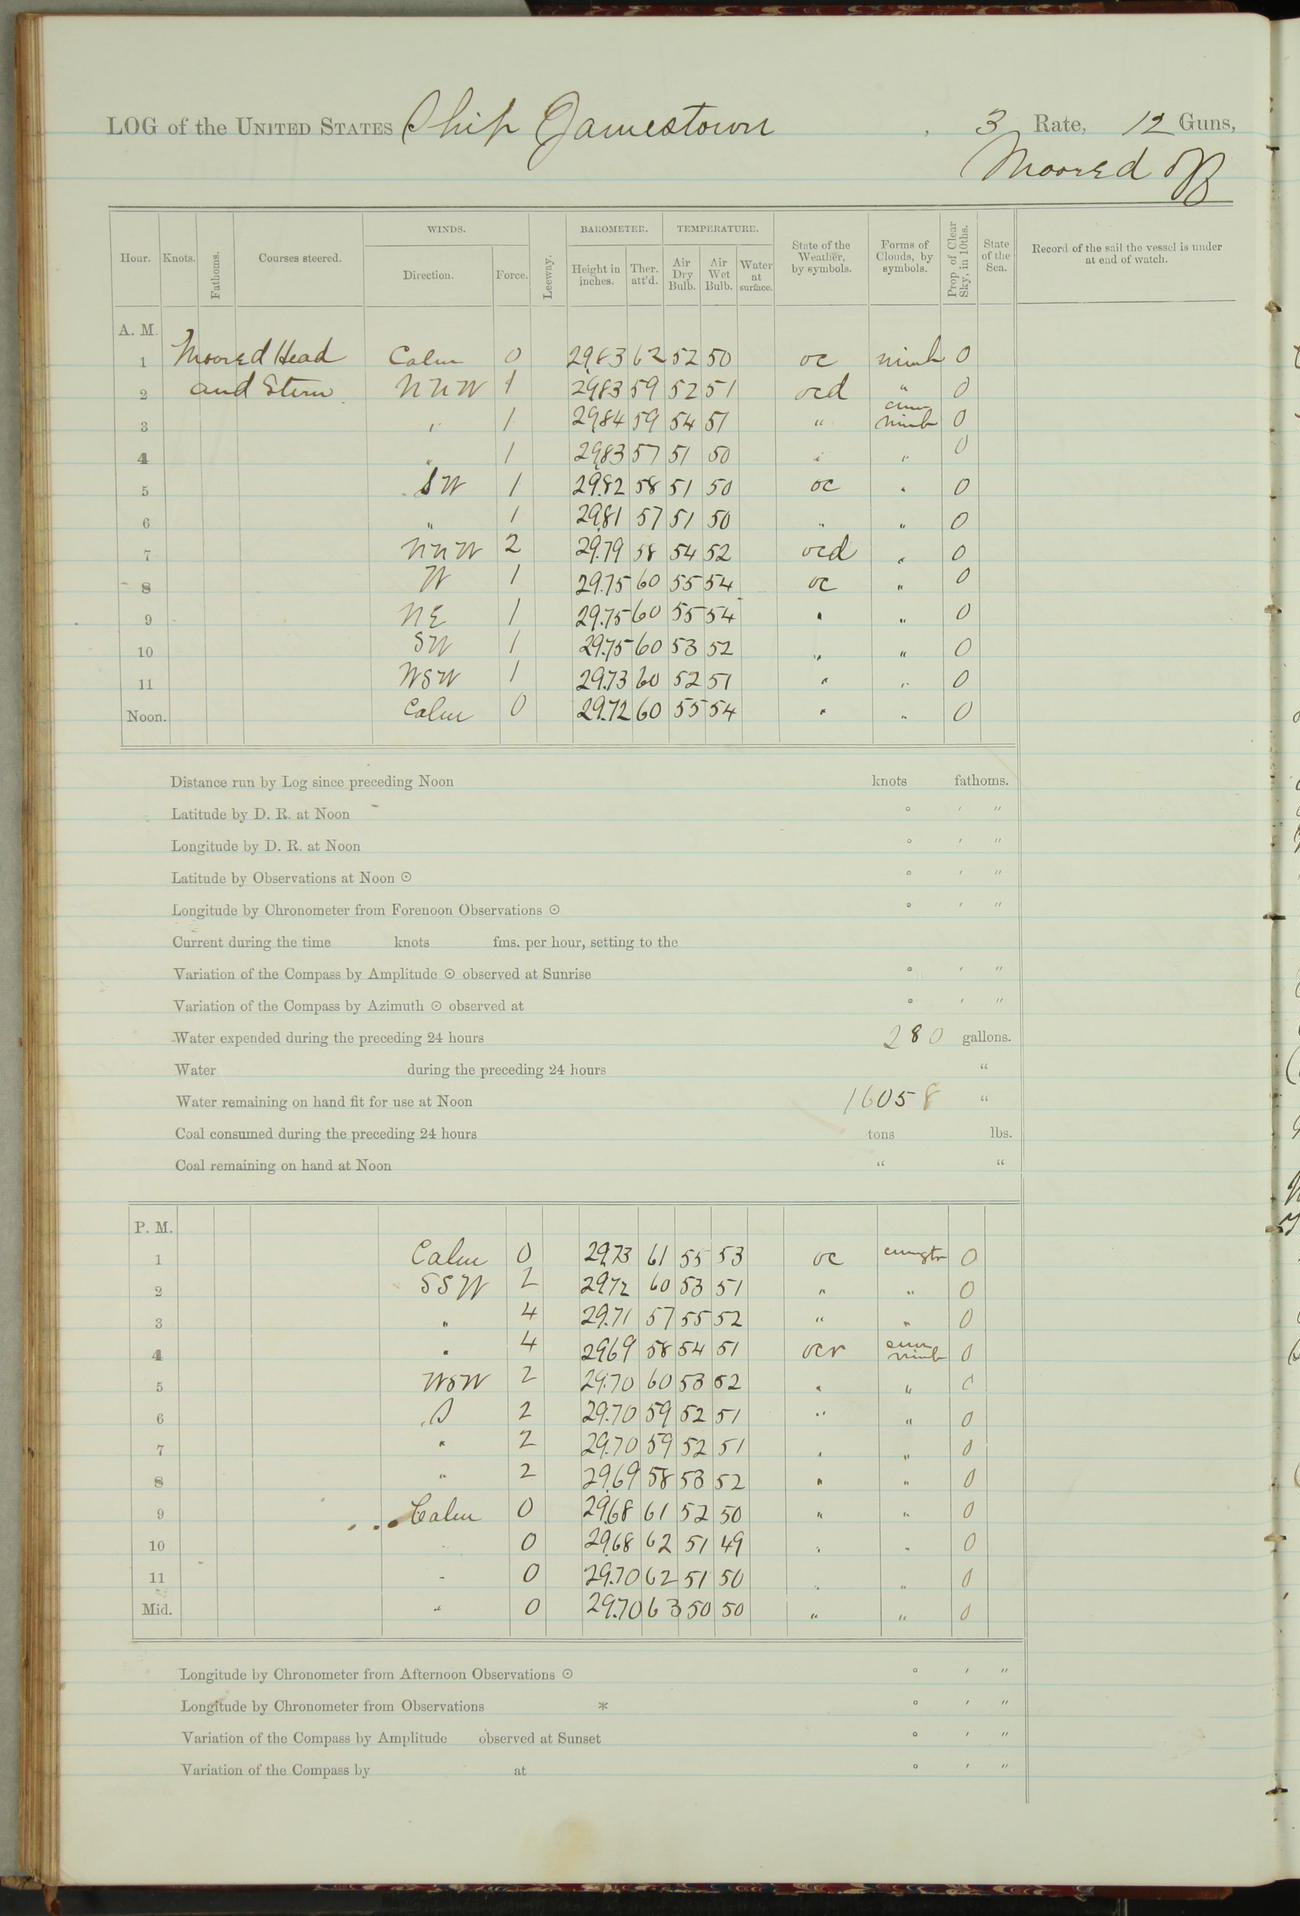 LOG of the UNITED STATES Ship Jamestown , 3 Rate, 12 Guns,
Moored off
Hour. Knots. Fathoms. Courses steered. WINDS. Direction. Force. Leeway. BAROMETER. Height in inches. Ther. att'd. TEMPERATURE. Air Dry Bulb. Air Wet Bulb. Water at surface. State of the Weather, by symbols. Forms of Clouds, by symbols. Prop. of Clear Sky, in 10ths. State of the Sea. Record of the sail the vessel is under at end of watch.
A. M.
1 Moored Head Calm 0 29.83 62 52 50 oc nimb 0
2 and Stern NNW 1 29.83 59 52 51 ocd " 0
3 " 1 29.84 59 54 51 " cum nimb 0
4 " 1 29.83 57 51 50 " " 0
5 SW 1 29.82 58 51 50 oc " 0
6 " 1 29.81 57 51 50 " " 0
7 NNW 2 29.79 58 54 52 ocd " 0
8 W 1 29.75 60 55 54 oc " 0
9 NE 1 29.75 60 55 54 " " 0
10 SW 1 29.75 60 53 52 " " 0
11 WSW 1 29.73 60 52 51 " " 0
Noon. Calm 0 29.72 60 55 54 " " 0
Distance run by Log since preceding Noon knots fathoms.
Latitude by D. R. at Noon ° ′ ″
Longitude by D. R. at Noon ° ′ ″
Latitude by Observations at Noon ☉ ° ′ ″
Longitude by Chronometer from Forenoon Observations ☉ ° ′ ″
Current during the time knots fms. per hour, setting to the
Variation of the Compass by Amplitude ☉ observed at Sunrise ° ′ ″
Variation of the Compass by Azimuth ☉ observed at ° ′ ″
Water expended during the preceding 24 hours 280 gallons.
Water during the preceding 24 hours "
Water remaining on hand fit for use at Noon 16058 "
Coal consumed during the preceding 24 hours tons lbs.
Coal remaining on hand at Noon " "
P. M.
1 Calm 0 29.73 61 55 53 oc 0
2 SSW 2 29.72 60 53 51 " " 0
3 " 4 29.71 57 55 52 " " 0
4 " 4 29.69 58 54 51 ocr cum nimb 0
5 WSW 2 29.70 60 53 52 " " 0
6 S 2 29.70 59 52 51 " " 0
7 " 2 29.70 59 52 51 " " 0
8 " 2 29.69 58 53 52 " " 0
9 Calm 0 29.68 61 52 50 " " 0
10 " 0 29.68 62 51 49 " " 0
11 " 0 29.70 62 51 50 " " 0
Mid. " 0 29.70 63 50 50 " " 0
Longitude by Chronometer from Afternoon Observations ☉ ° ′ ″
Longitude by Chronometer from Observations * ° ′ ″
Variation of the Compass by Amplitude observed at Sunset ° ′ ″
Variation of the Compass by at ° ′ ″